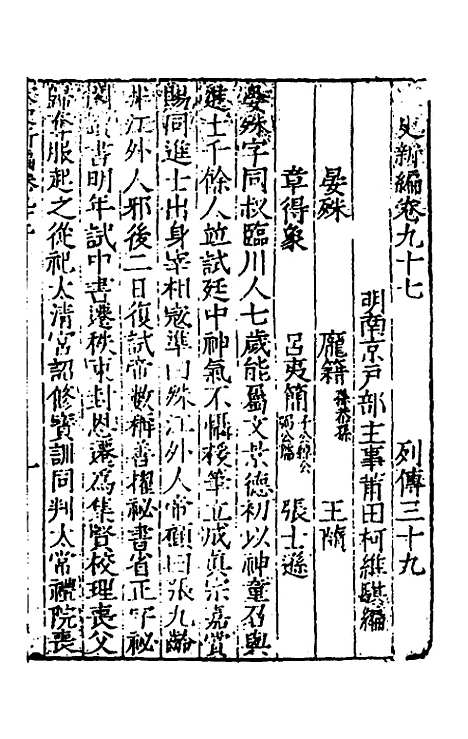 史新編卷九十七　列傳三十九
明南京戶部主事莆田柯維騏編
晏殊　龐籍孫恭孫　王隨
章得象　呂夷簡子公綽公弼公孺　張士遜
晏殊字同叔臨川人七歲能屬文景德初以神童召與
進士千餘人並試廷中神氣不懾援筆立成真宗嘉賞
賜同進士出身宰相寇準曰殊江外人帝顧曰張九齡
非江外人邪後二日復試帝數稱善擢秘書省正字祕
閣讀書明年試中書遷太常東封恩遷爲集賢校理喪父
歸奉服起之從祀太清宮詔修寶訓同判太常禮院喪